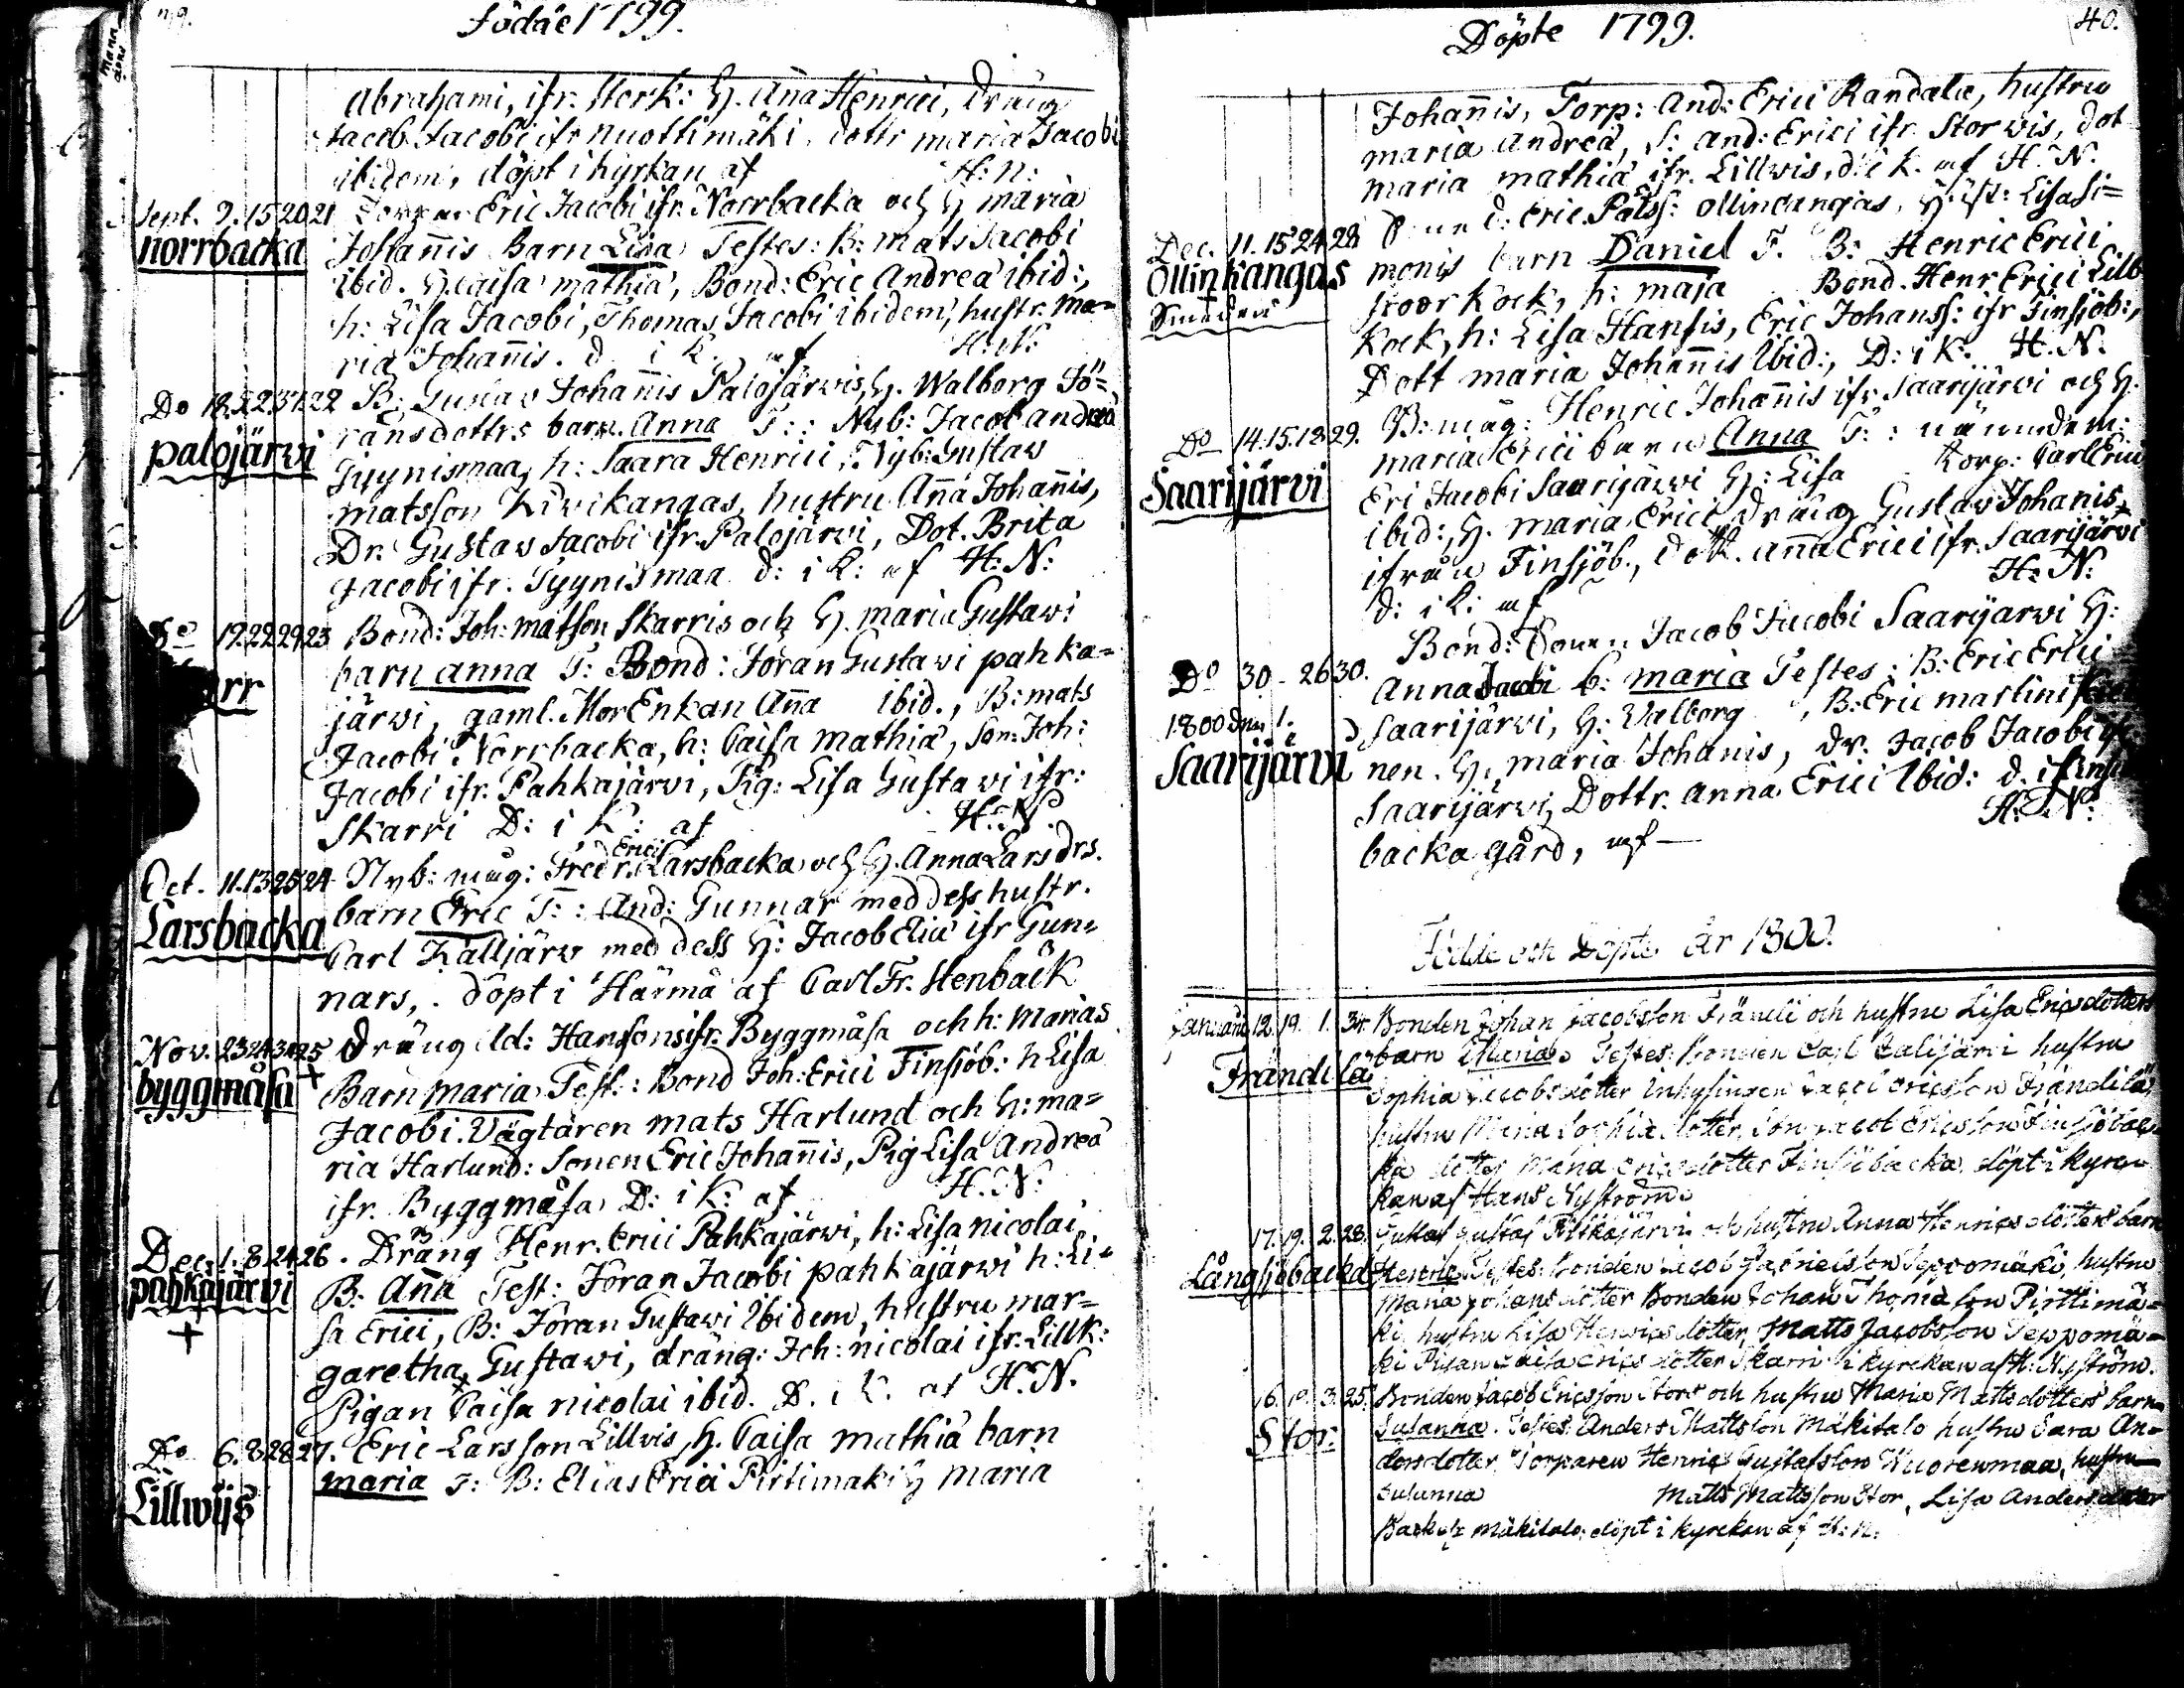 Födde 1799.
Abrahami, ifr. Stork: H. Anna Henrici, Dräng
Jacob Jacobi ifr nuottimäki, dottr maria Jacobi
ibidem, döpt i kyrkan af H: n:
Sept. 9. 15 20 21 Eric Jacobi ifr. Norrbacka och H maria
norrbacka Johannis Barn Lisa Testes: B: mats Jacobi
ibid. H. Caisa mathiä, Bond: Eric Andreä ibid:,
h: Lisa Jacobi, Thomas Jacobi ibidem, hustr. Ma=
ria Johannis. d i K. af H: N:
Do B: Gustav Johannis Palojärvis, H. Walborg Jö=
palojärvi ransdottrs barn. Anna T:: Nyb: Jacob andreä
Tyynismaa, h: Saara Henrici, Nyb: Gustaw
matsson Kiwikangas, hustru Anna Johannis,
Dr. Gustav Jacobi ifr. Palojärvi, Dot. Brita
Jacobi ifr. Tyynismaa d: i K: af H: N:
Do 19. 22 29 23 Bond: Joh: matson Skarris och H. maria Gustawi
barn anna T: Bond: Jöran Gustavi pahka=
järvi, gaml. Mor Enkan Anna ibid., B: mats
Jacobi Norrbacka, h: Caisa mathiä, Son: Joh:
Jacobi ifr. Pahkajärvi, Pig: Lisa Gustawi ifr:
Skarri D: i K: af H: N:
Erici
Oct. 11. 13 25 24 Nyb: måg: Fredr. Larsbacka och H. Anna Lars drs.
Larsbacka barn Eric T:: And: Gunnar med dess hustr.
Carl Kalljärv med dess H: Jacob Eliä ifr Gun=
nars,. döpt i Härmä af Carl Fr. Stenbäck
Nov. 23 24 31 25 Dräng ld: Hansons ifr. Byggmäsa och h: Marias
byggmäsa Barn maria Test: Bond Joh: Erici Finsjöb: h Lisa
Jacobi. Vägtären mats Harlund och H: ma=
ria Harlund: Sonen Eric Johannis, Pig Lisa Andreä
ifr. Byggmäsa D: i K: af H. N:
Dec. 1. 8 24 26. Dräng Henr. Erici Pahkajärvi, h: Lisa nicolai
pahkajärvi B: Anna Test: Jöran Jacobi pahkajärvi h: Li=
sa Erici, B: Jöran Gustawi Ibidem, hustru mar=
garetha Gustawi, dräng: Joh: nicolai ifr. Lillk:
Pigan Caisa nicolai ibid. D. i K. af H. N.
Do 6. 8 28 27. Eric Larsson Lillvis, H. Caisa mathiä barn
Lillwijs maria T: B: Elias Erici Pirtimaki H maria
Döpte 1799.
40.
Johannis, Torp: And: Erici Randala, hustru
maria Andreä, S: And: Erici ifr. Storvis, dot
maria mathiä ifr. Lillvis, d: i K. af H. N.
Dec. 11. 15 24 28 Eric. Pålss: ollincangas, Hust: Lisa Si=
Ollinkangas monis barn Daniel T. B: Henric Erici
Stoor Kock, h: maja Bond. Henr Erici Lill
Kock, h: Lisa Hansis, Eric Johanss: ifr Finsjöb:,
Dott maria Johannis Ibid:, D: i K: H. N.
Do 14. 15. 18 29. B: måg: Henric Johannis ifr Saarijärvi och H.
Saarijärvi maria Erici barn Anna T:: nämndem:
Eri Jacobi Saarijärvi H: Lisa Torp: Carl Erici
ibid:, H. maria Erici, dräng Gustav Johannis
ifrån Finsjöb., dott. anna Erici ifr. Saarijärvi
d: i K: af H: N:
Do 30 - 26 30. Bond: Jacob Jacobi Saarijarvi H:
Anna Jacobi b: maria Testes: B: Eric Erici
1800 1. Saarijärvi, H: Valborg , B: Eric martini
Saarijärvi nen. H. maria Johanis, dr. Jacob Jacobi
Saarijärvi, Dottr. anna Erici Ibid: d. i
backa gård, af — H. N:
Födde och Döpte År 1800.
Januarii 12. 19. 1. 34. Bonden Johan Jacobsson Frändi och hustru Lisa Ericsdotters
Frandilä barn Maria Testes: Bonden Carl Calijärvi hustru
Sophia Jacobsdotter Inhysingen Ericsson Frändilä,
hustru Maria dotter, Son Jacob Ericsson Finsjöbac
ka dotter Maria Ericsdotter Finsjöbacka, döpt i kyre=
kan af Hans Nyström.
17. 19. 2. 28. Gustaf Gustaf och hustru Anna Henricsdotters barn
Långsjöbacka Henric Testes: Bonden Jacob Gabrielsson Seppomäki, hustru
Maria Johansdotter Bonden Johan Thomasson Pirttimä=
ki, hustru Lisa Henricsdotter, Matts Jacobsson Seppomä=
ki Pigan Caisa Ericsdotter Skarri i kyrekan af H: Nyström.
16. 19. 3. 25. Bonden Jacob Ericsson Stor och hustru Maria Mattsdotters barn
Stor Susanna. Testes: Anders Mattsson Mäkitalo hustru Sara An=
dersdotter. Torparen Henric Gustafsson Wuorenmaa, hustru
Susanna Matts Mattsson Stor, Lisa Andersdotter
Mäkitalo: döpt i kyrekan af H: N: